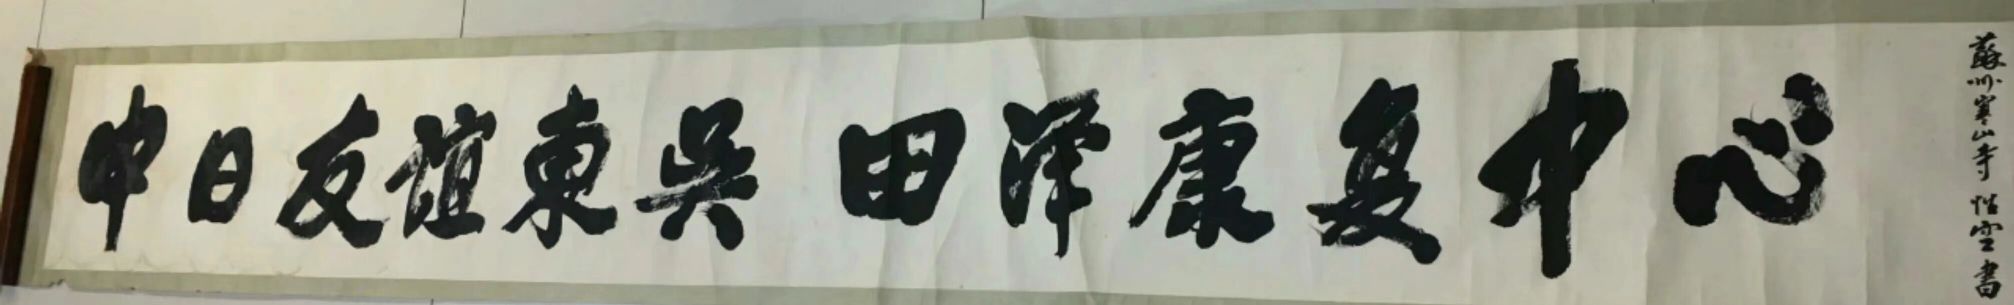 中日友誼東吳 田泽康复中心
蘇州寒山寺 性空書